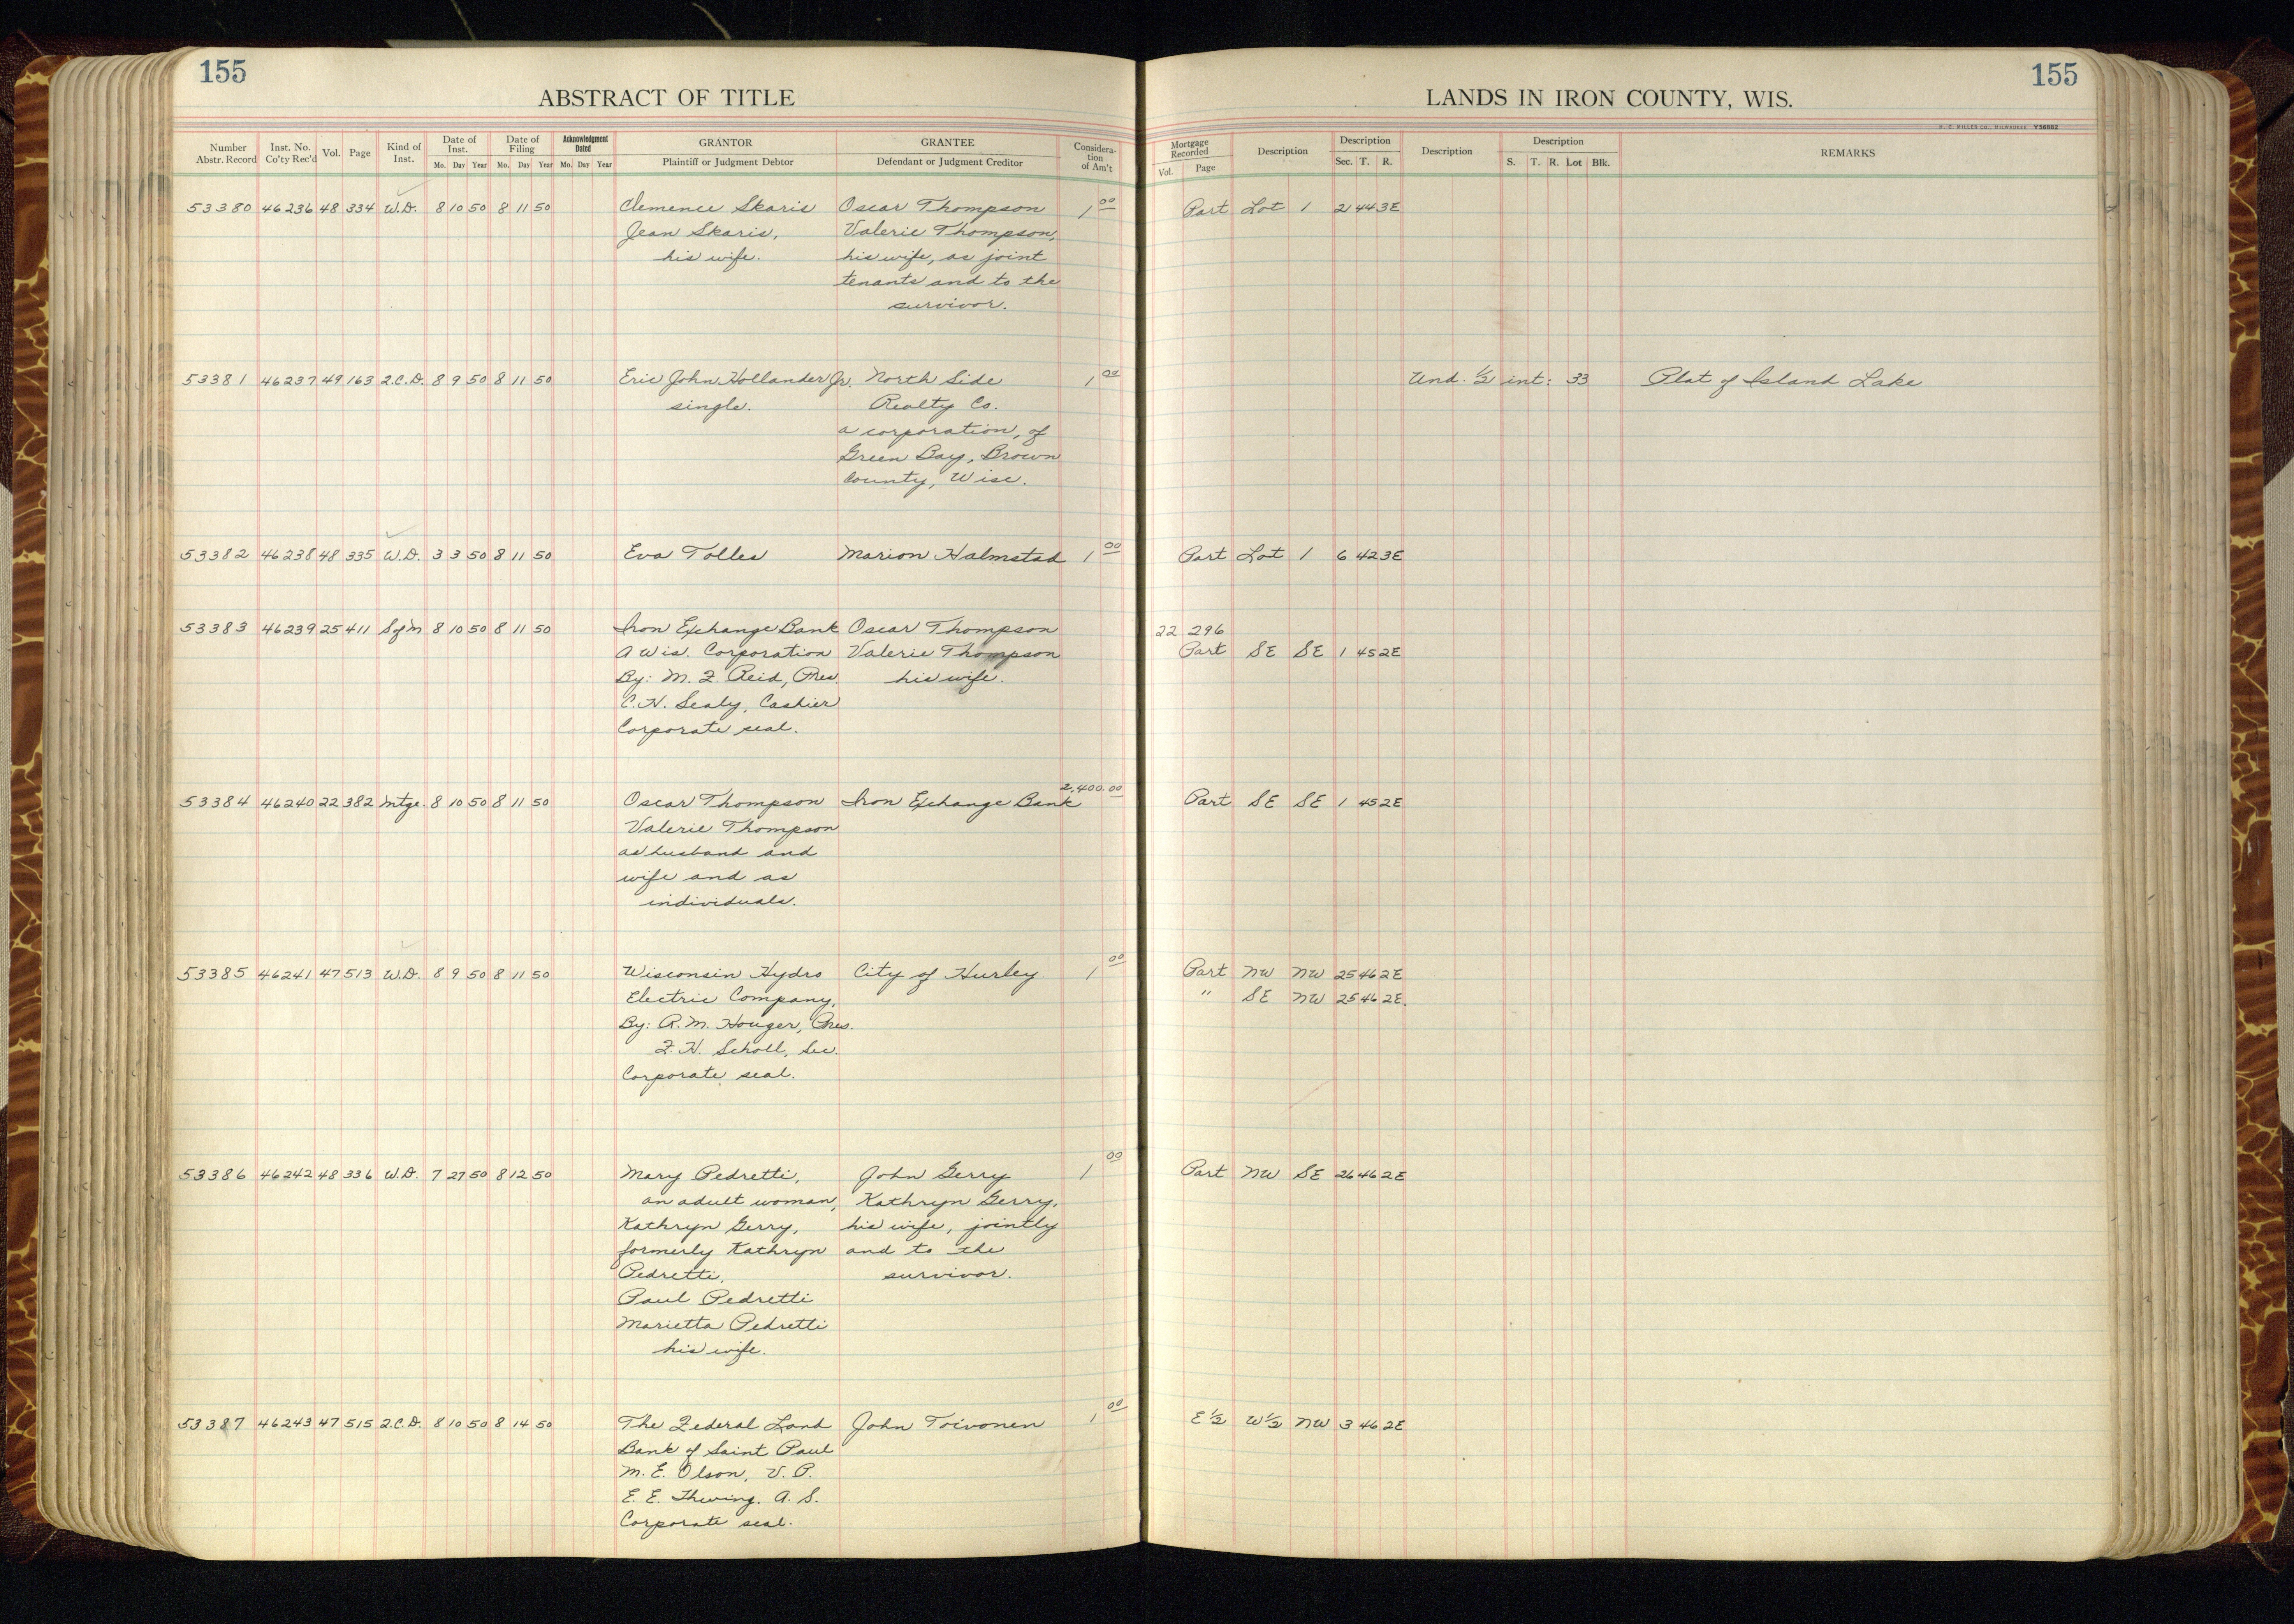 155
ABSTRACT OF TITLE
Number Abstr. Record Inst. No. Co'ty Rec'd Vol. Page Kind of Inst. Date of Inst. Mo. Day Year Date of Filing Mo. Day Year Acknowledgment Dated Mo. Day Year GRANTOR Plaintiff or Judgment Debtor GRANTEE Defendant or Judgment Creditor Considera- tion of Am't
155
LANDS IN IRON COUNTY, WIS.
H. C. MILLER CO., MILWAUKEE Y56882
Mortgage Recorded Vol. Page Description Description Sec. T. R. Description Description S. T. R. Lot Blk. REMARKS
53380 46236 48 334 W.D. 8 10 50 8 11 50 Clemence Skaris Oscar Thompson 1 00 Part Lot 1 2 44 3E
Jean Skaris, Valerie Thompson,
his wife. his wife, as joint
tenants and to the
survivor.
53381 46237 49 163 2.C.D. 8 9 50 8 11 50 Eric John Hollander Jr. North Side 1 00 Und. 1/2 int: 33 Plat of Island Lake
single. Realty Co.
a corporation, of
Green Bay, Brown
County, Wisc.
53382 46238 48 335 W.D. 3 3 50 8 11 50 Eva Tolles Marion Halmstad 1 00 Part Lot 1 6 42 3E
53383 46239 25 411 S of M 8 10 50 8 11 50 Iron Exchange Bank Oscar Thompson 22 296
A Wis. Corporation Valerie Thompson Part SE SE 1 45 2E
By: M. Z. Reid, Pres. his wife.
C.H. Sealy, Cashier
Corporate seal.
53384 46240 22 382 Mtge. 8 10 50 8 11 50 Oscar Thompson Iron Exchange Bank 2,400.00 Part SE SE 1 45 2E
Valerie Thompson
as husband and
wife and as
individuals.
53385 46241 47 513 W.D. 8 9 50 8 11 50 Wisconsin Hydro City of Hurley. 1 00 Part NW NW 25 46 2E
Electric Company, " SE NW 25 46 2E.
By: R. M. Houger, Pres.
F. H. Scholl, Sec.
Corporate seal.
53386 46242 48 336 W.D. 7 27 50 8 12 50 Mary Pedretti, John Gerry 1 00 Part NW SE 26 46 2E
an adult woman, Kathryn Gerry,
Kathryn Gerry, his wife, jointly
formerly Kathryn and to the
Pedretti, survivor.
Paul Pedretti
Marietta Pedretti
his wife.
53387 46243 47 515 2.C.D. 8 10 50 8 14 50 The Federal Land John Toivonen 1 00 E 1/2 W 1/2 NW 3 46 2E
Bank of Saint Paul
M. E. Olson, V. P.
E. E. Thwing, A. S.
Corporate seal.